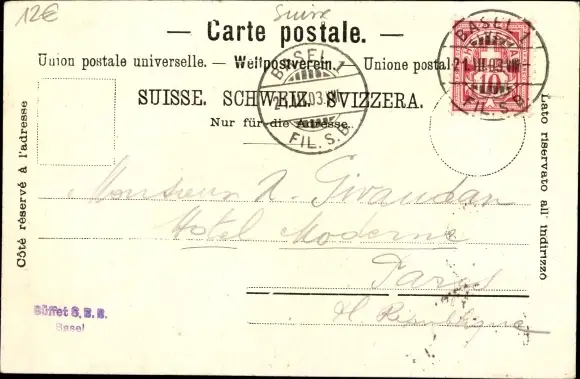 12€
Suisse
— Carte postale. —
Union postale universelle. — Weltpostverein. — Unione postale
SUISSE. SCHWEIZ. SVIZZERA.
Nur für die Adresse.
BASEL 1
21.III.03.VIII
FIL. S.B.
BASEL 1
21.III.03.VIII
FIL. S.B.
10
Côté réservé à l'adresse
Lato riservato all' indirizzo
Monsieur A. Givaudan
Hotel Moderne
Paris
Pl. République
Büffet S. B. B.
Basel